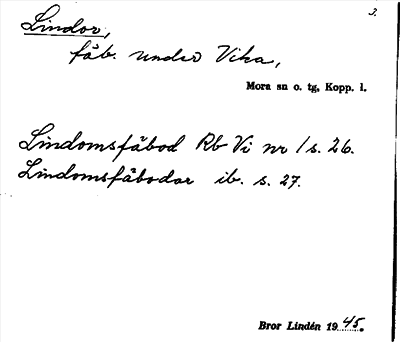 3.
Lindor,
fäb. under Vika,
Mora sn o. tg, Kopp. l.
Lindomsfäbod Rb Vi nr 1 s. 26.
Lindomsfäbodar ib. s. 27.
Bror Lindén 1945.